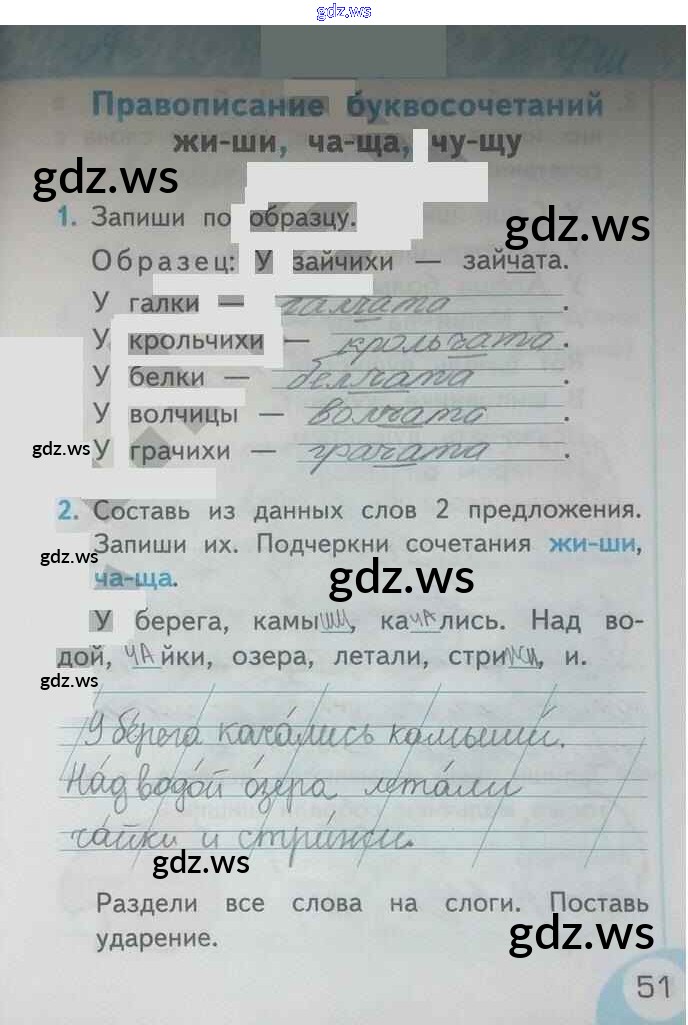 gdz.ws
Правописание буквосочетаний
жи-ши, ча-ща, чу-щу
gdz.ws
gdz.ws
1. Запиши по образцу.
Образец: У зайчихи — зайчата.
У галки — галчата.
У крольчихи — крольчата.
У белки — белчата.
У волчицы — волчата.
gdz.ws У грачихи — грачата.
2. Составь из данных слов 2 предложения.
Запиши их. Подчеркни сочетания жи-ши,
gdz.ws
ча-ща.
gdz.ws
У берега, камыши, качались. Над во-
дой, чайки, озера, летали, стрижи, и.
gdz.ws
У берега качались камыши.
Над водой озера летали
чайки и стрижи.
gdz.ws
Раздели все слова на слоги. Поставь
ударение.
gdz.ws
51